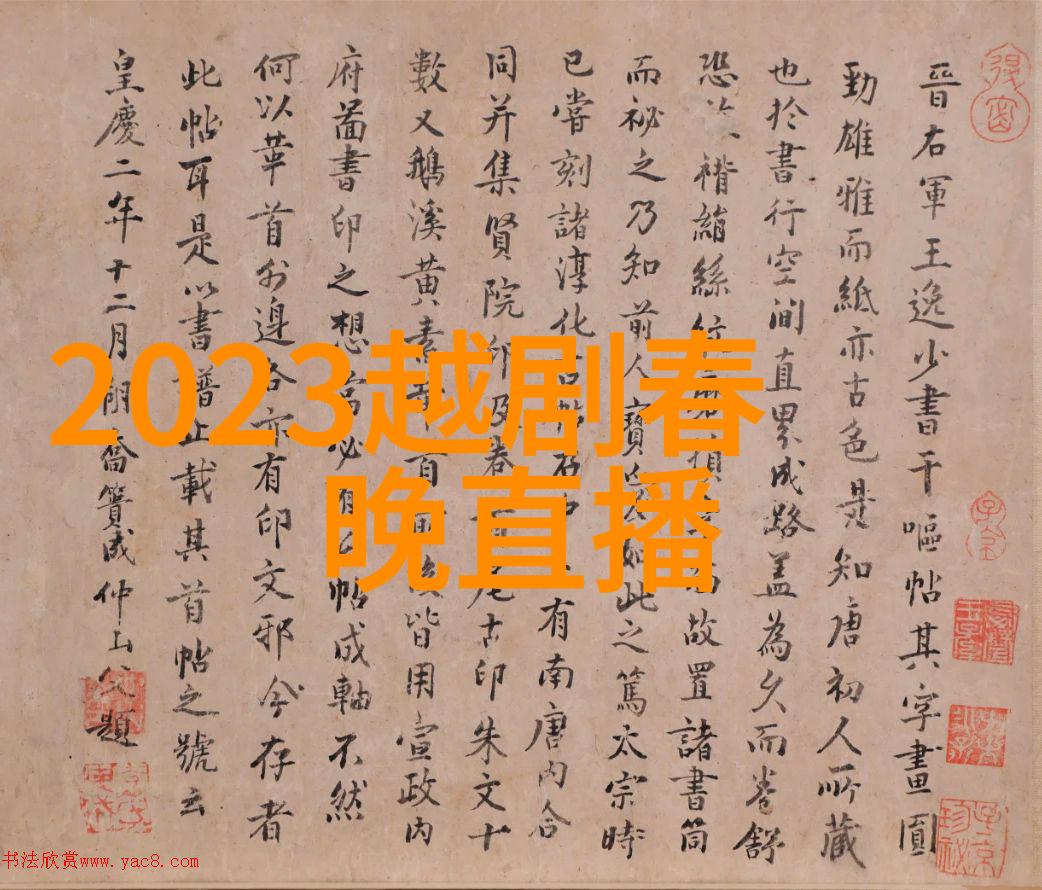 2023越剧春
晚直播
晉右軍王逸少書干嘔帖其字畫圓
勁雄雅而紙亦古色是知唐初人所藏
也於書行空間直界成路盖為久而卷舒
恐 褙絹絲 故置諸書筒
而祕之乃知前人寶 如此之篤太宗時
已嘗刻諸淳化 有南唐内合
同并集賢院印及卷 尾古印朱文十
數又鵝溪黄素 皆用宣政内
府圖書印之想當必有 帖成軸不然
何以華首外邊各 有印文邪今存者
此帖耳是以書譜止載其首帖之號云
皇慶二年十二月 喬簣成仲山父題
书法欣赏www.yac8.com